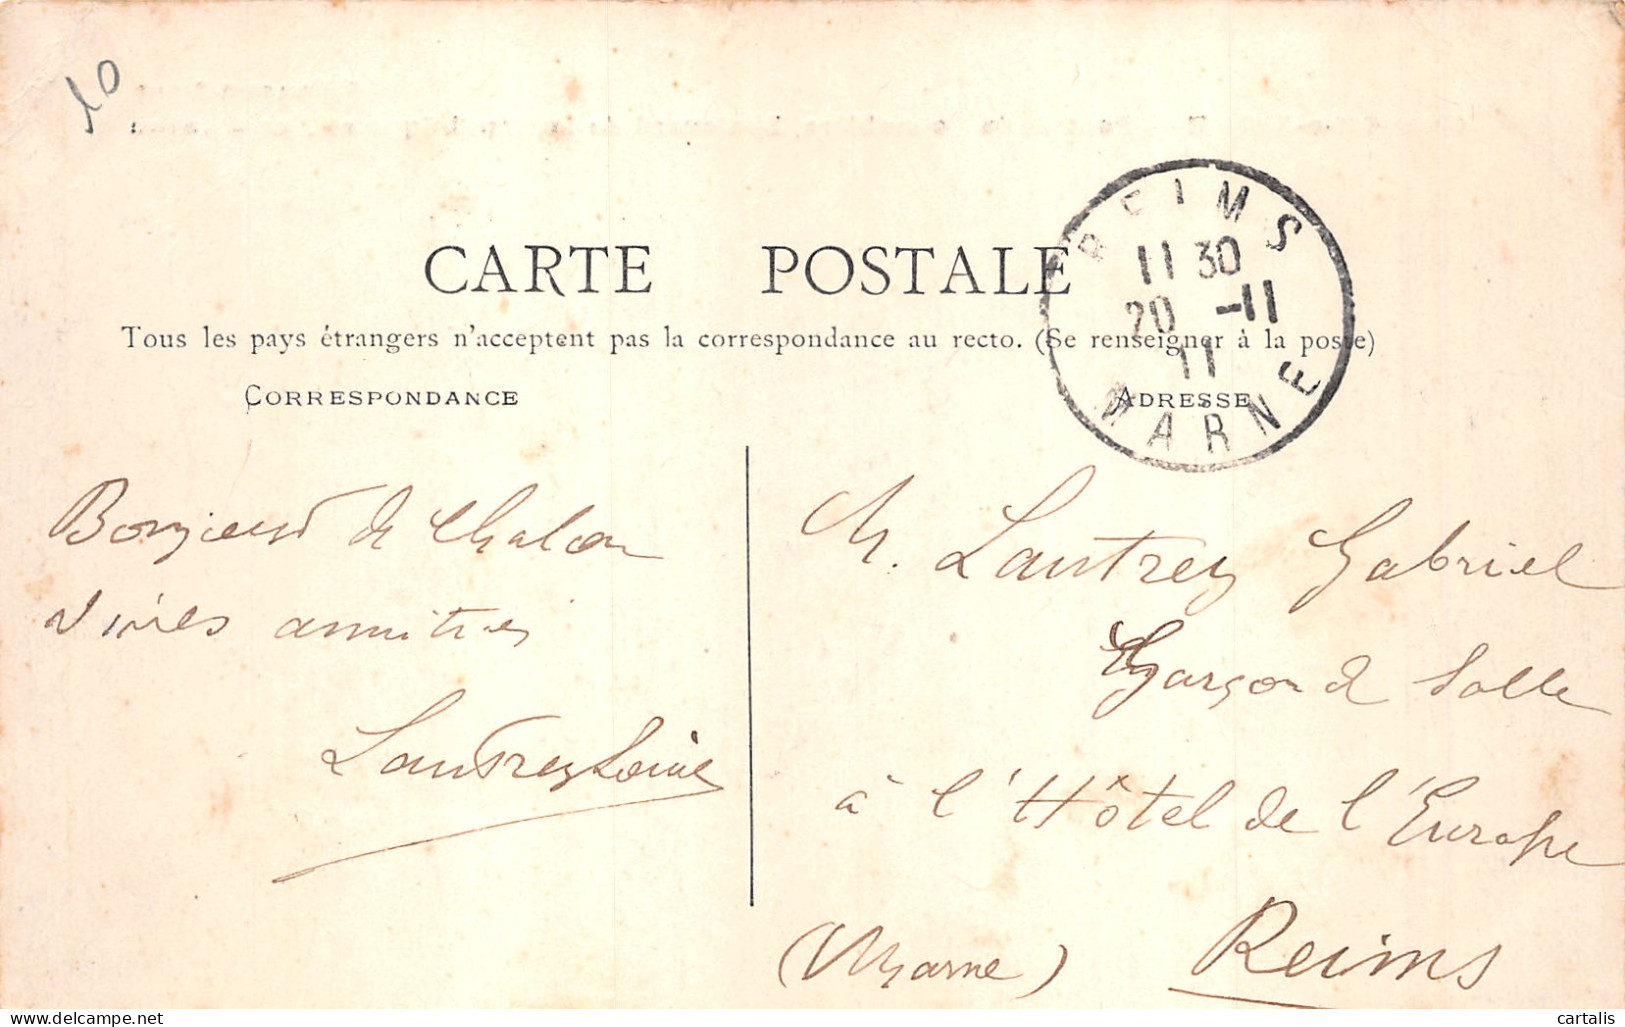 10
REIMS
11 30
20 -11
11
MARNE
CARTE POSTALE
Tous les pays étrangers n'acceptent pas la correspondance au recto. (Se renseigner à la poste)
CORRESPONDANCE
ADRESSE
Bonjour de Chalon
Vives amitiés
Lautrey
M. Lautrey Gabriel
Garçon de Salle
à l'Hôtel de l'Europe
(Marne) Reims
cartalis
www.delcampe.net